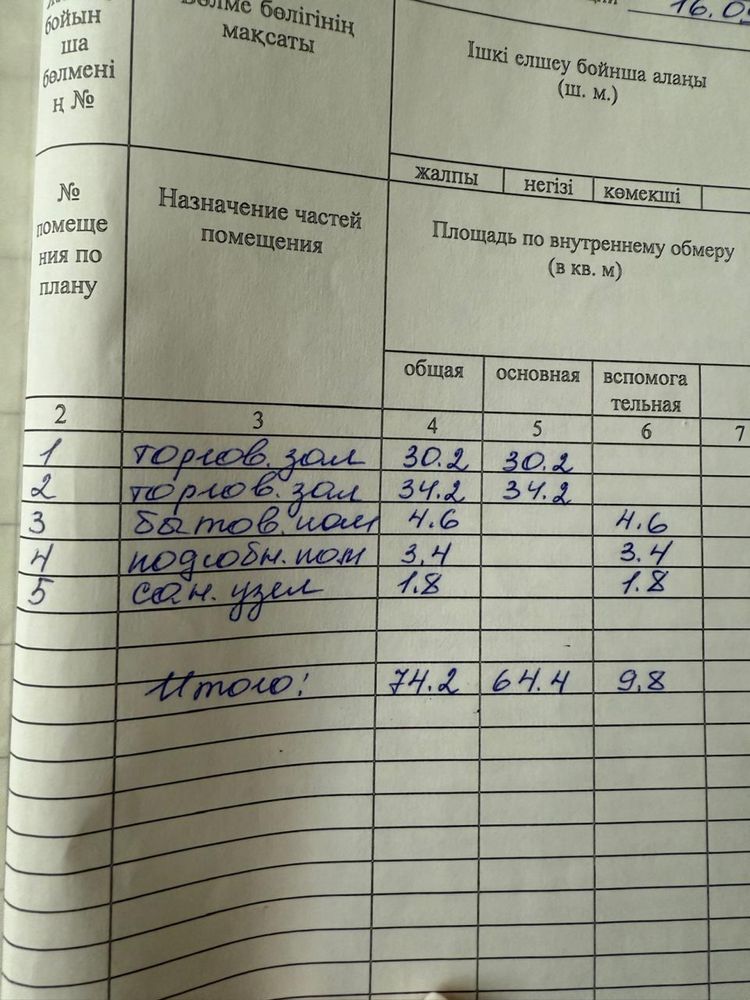 бойын
ша
бөлмені
ң №
Бөлме бөлігінің
мақсаты
16.0
Ішкі елшеу бойнша алаңы
(ш. м.)
жалпы негізі көмекші
№
помеще
ния по
плану
Назначение частей
помещения
Площадь по внутреннему обмеру
(в кв. м)
общая основная вспомога
тельная
2 3 4 5 6 7
1 торгов. зал 30.2 30.2
2 торгов. зал 34.2 34.2
3 бытов. пом 4.6 4.6
4 подсобн. пом 3,4 3.4
5 сан. узел 1.8 1.8
Итого: 74.2 64.4 9,8